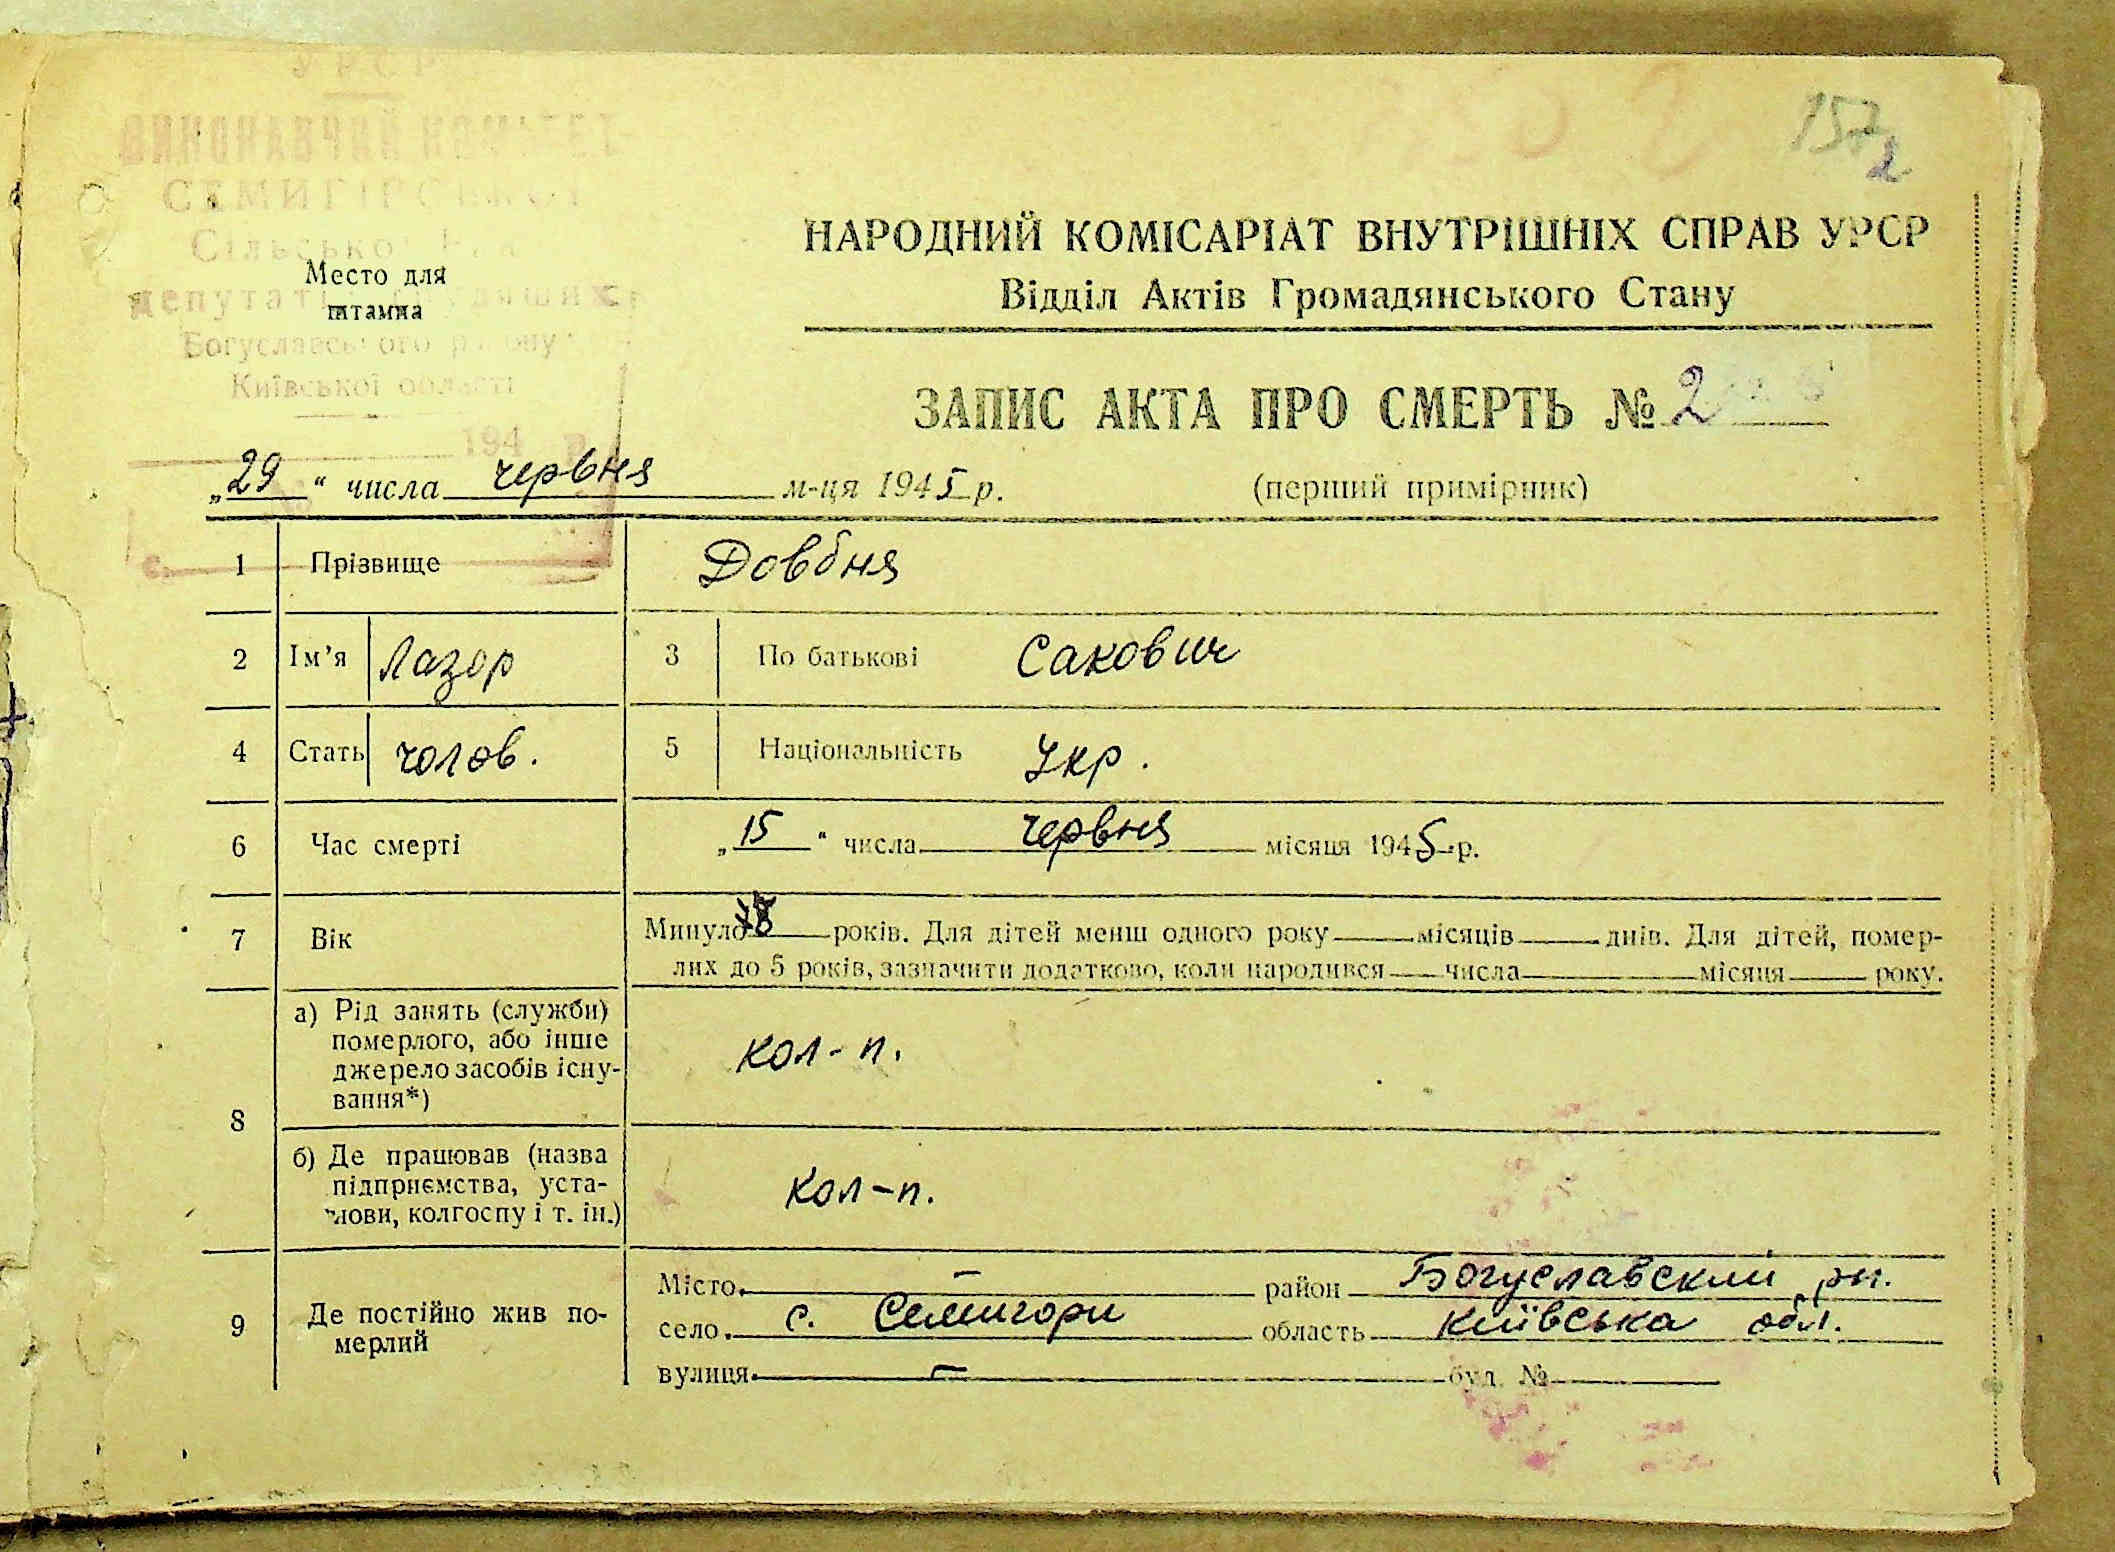 УРСР
ВИКОНАВЧИЙ КОМІТЕТ
СЕМИГІРСЬКОЇ
Сільської
депутатів трудящих
Богуславського району
Київської області
194
Место для
штампа
157
2
НАРОДНИЙ КОМІСАРІАТ ВНУТРІШНІХ СПРАВ УРСР
Відділ Актів Громадянського Стану
ЗАПИС АКТА ПРО СМЕРТЬ № 2
„29“ числа червня м-ця 1945 р. (перший примірник)
1 Прізвище Довбня
2 Ім’я Лазор 3 По батькові Сакович
4 Стать чолов. 5 Національність Укр.
6 Час смерті „15“ числа червня місяця 1945 р.
7 Вік Минуло років. Для дітей менш одного року місяців днів. Для дітей, помер-
лих до 5 років, зазначити додатково, коли народився числа місяця року.
8 а) Рід занять (служби)
померлого, або інше
джерело засобів існу-
вання*)
кол-п.
б) Де працював (назва
підприємства, уста-
нови, колгоспу і т. ін.)
кол-п.
9 Де постійно жив по-
мерлий
Місто — район Богуславский рн.
село с. Семигори область Київська обл.
вулиця — буд. №